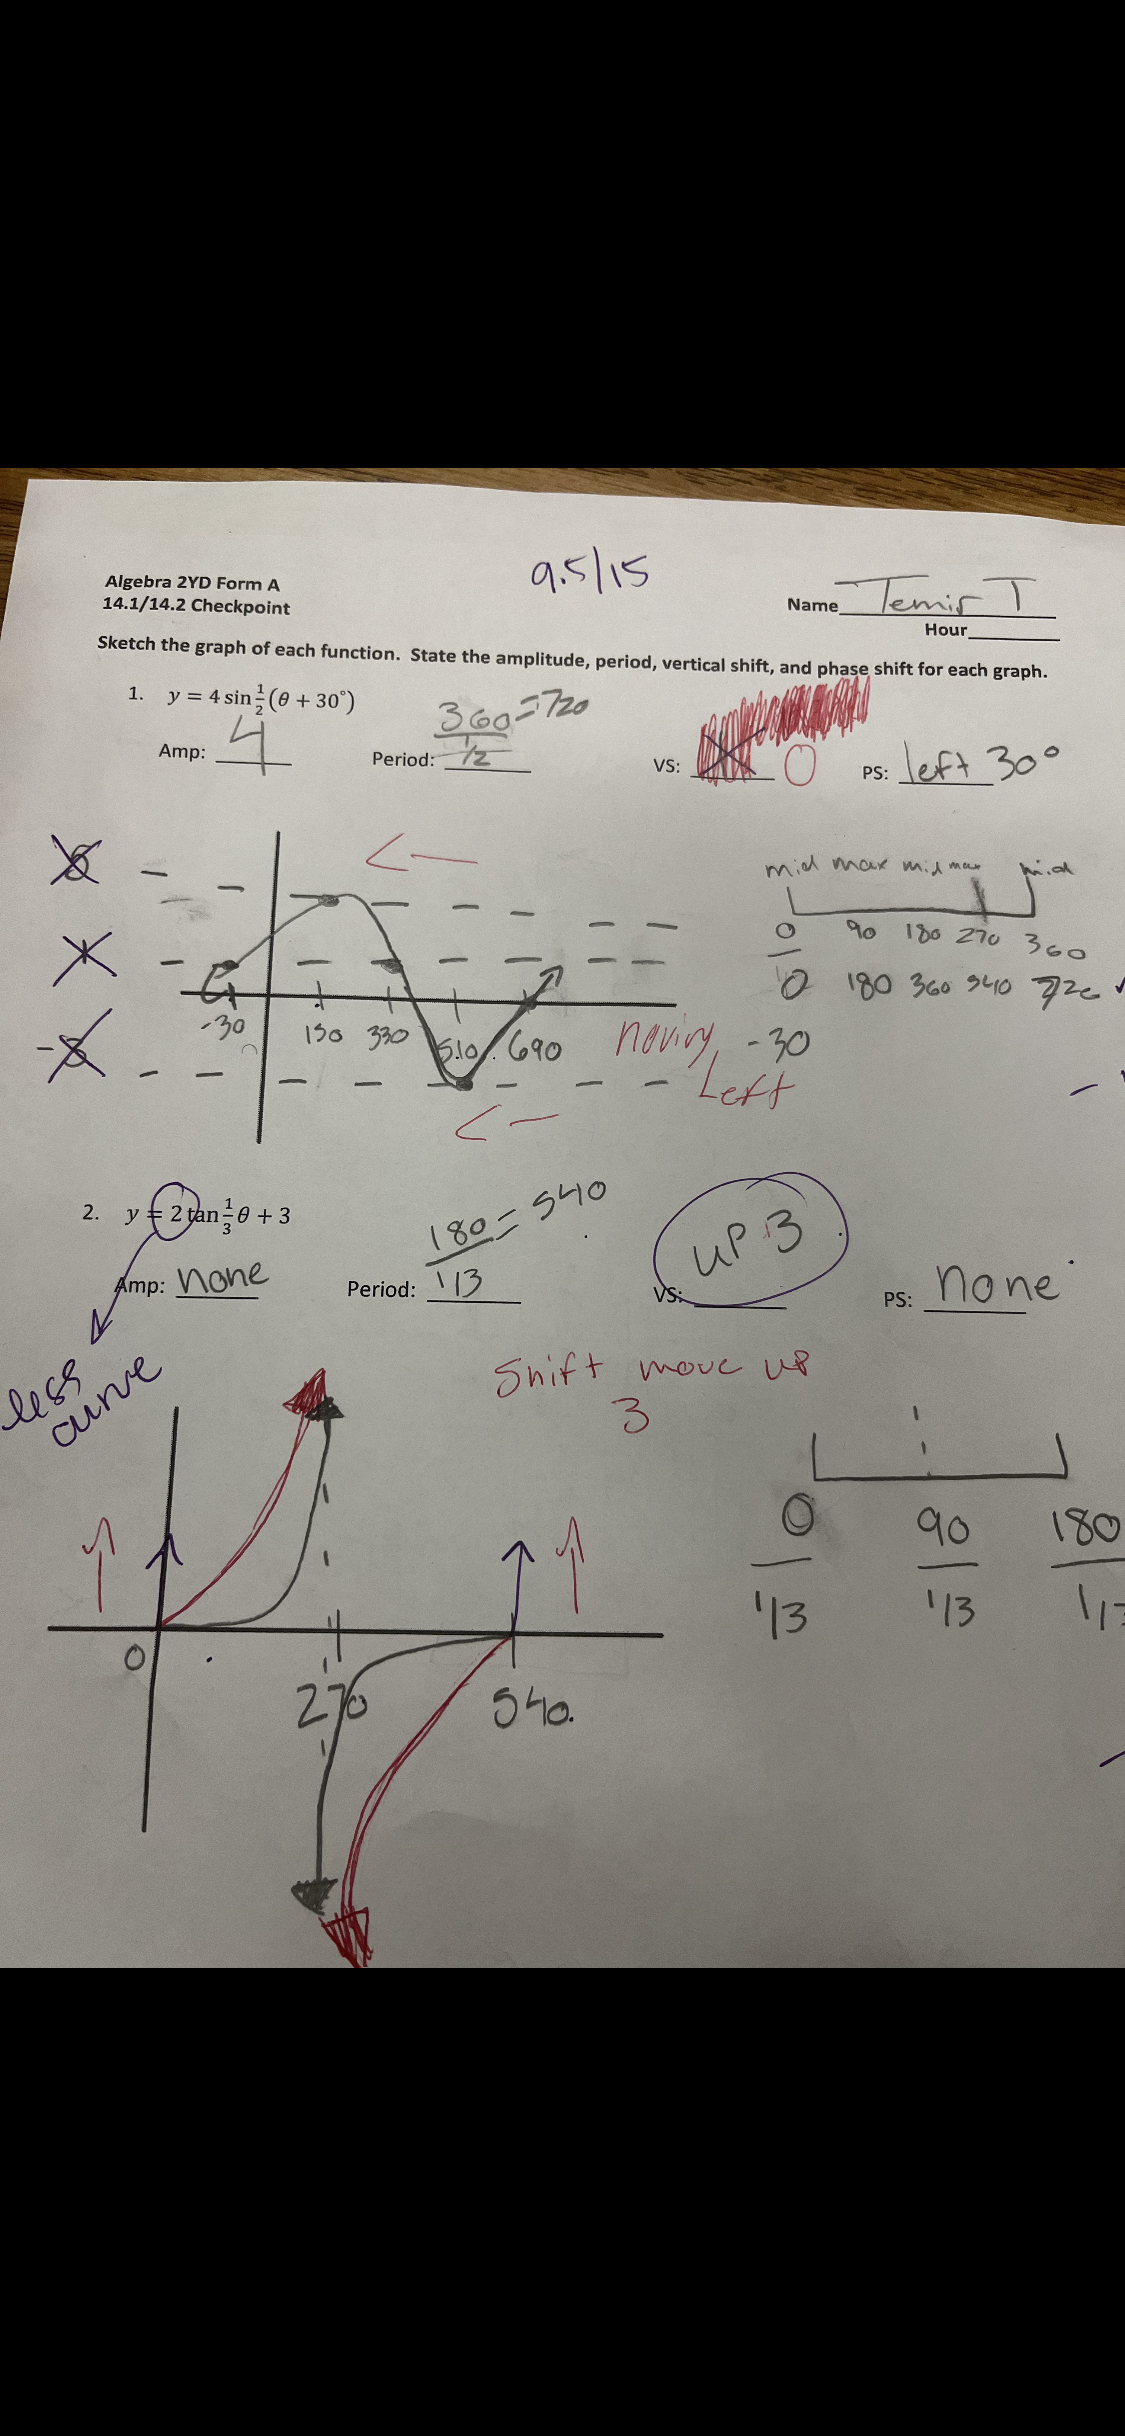 9.5/15
Algebra 2YD Form A
14.1/14.2 Checkpoint
Name Temir T
Hour
Sketch the graph of each function. State the amplitude, period, vertical shift, and phase shift for each graph.
1. y = 4 sin 1/2 (θ + 30°)
Amp: 4 Period: 360/1/2 = 720 VS: 0 PS: left 30°
mid max mid max mid
0 90 180 270 360
0 180 360 540 720
-30 150 330 510 690
moving -30
Left
2. y = 2 tan 1/3 θ + 3
Amp: none Period: 180/1/3 = 540 VS: UP 3 PS: none
less
curve
Shift move up
3
0 90 180
1/3 1/3 1/3
0 270 540